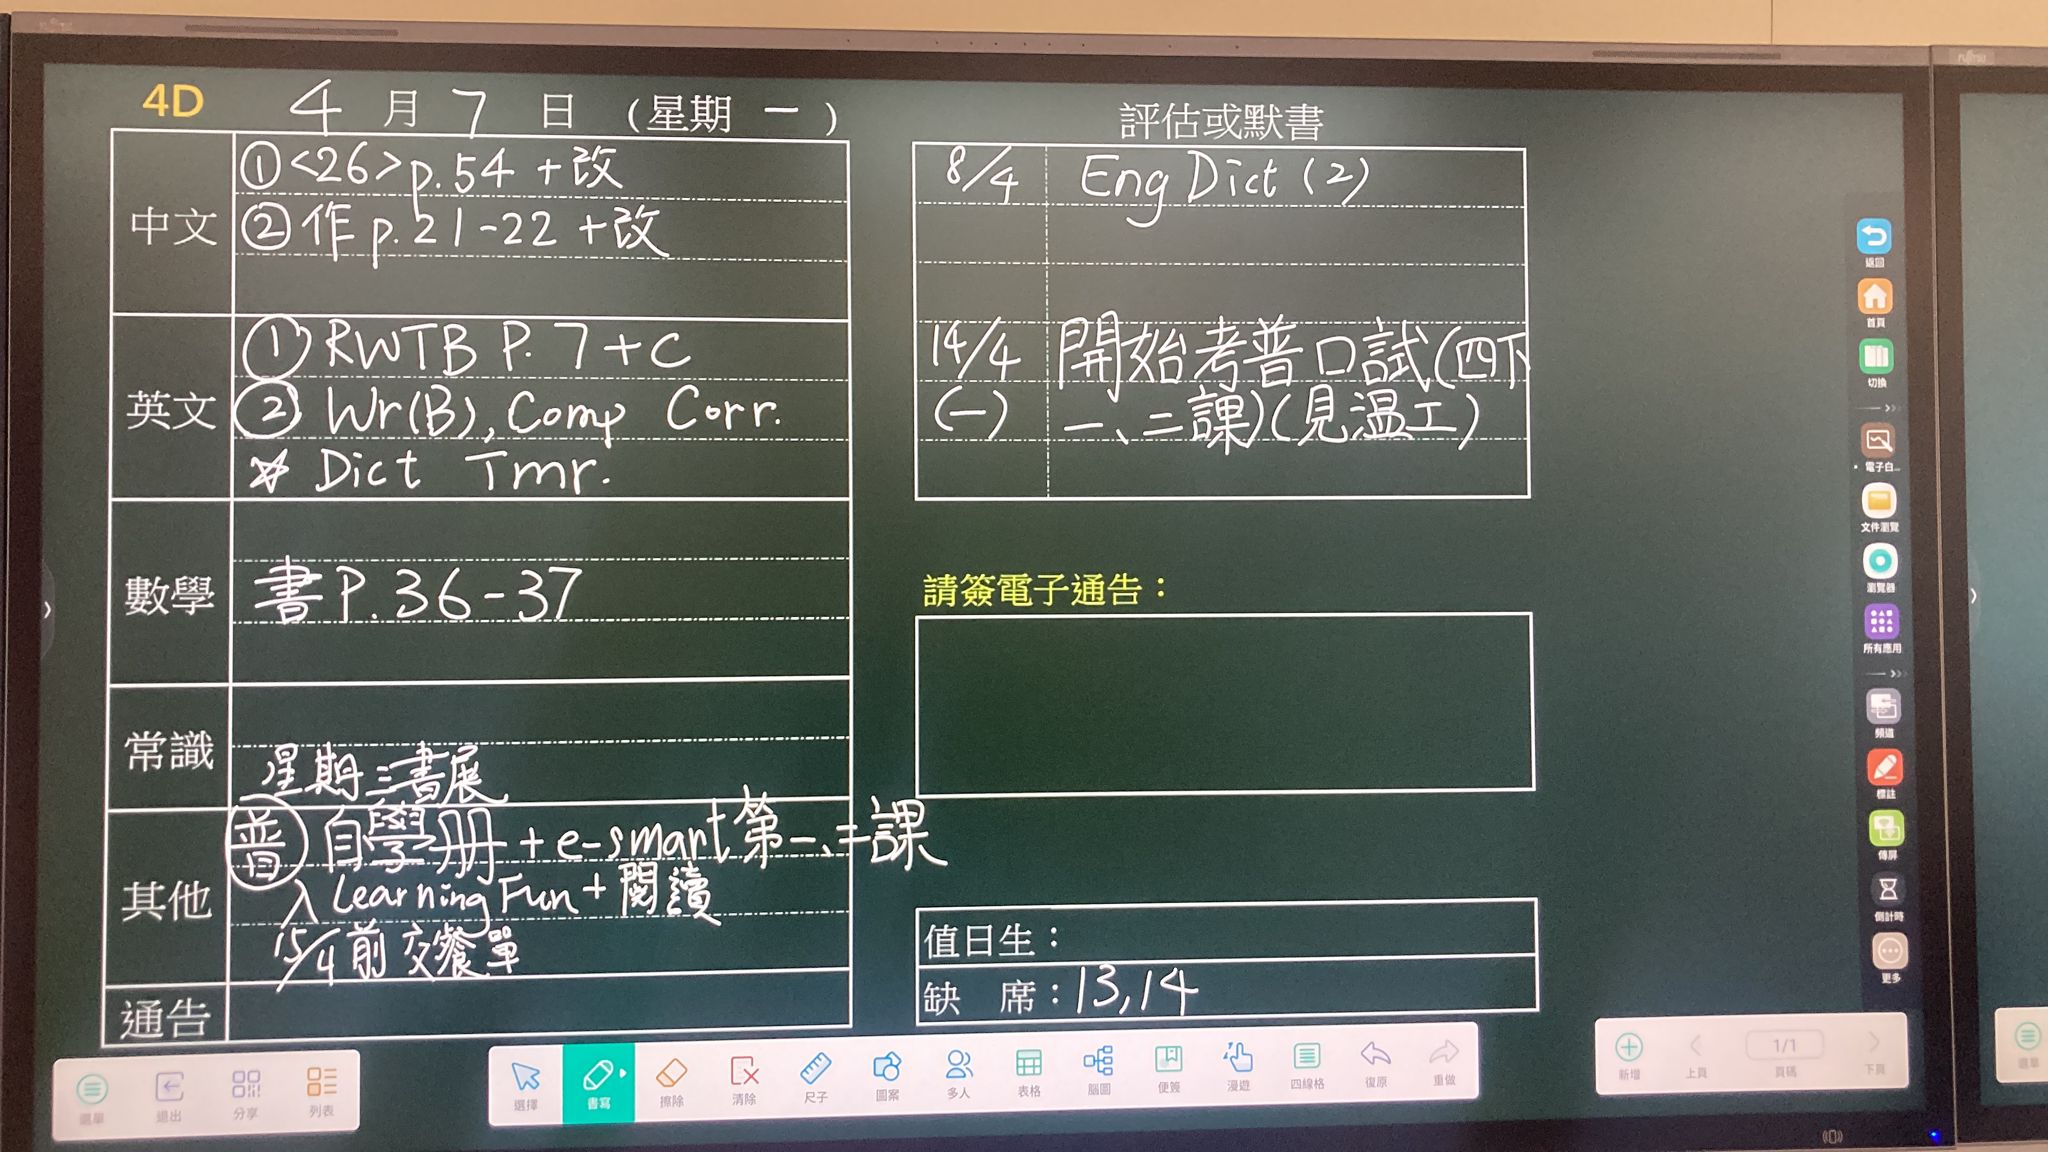 4D 4月7日（星期一）
中文
①<26>p.54+改
②作p.21-22+改
英文
①RWTB P.7+C
②Wr(B), Comp Corr.
☆ Dict Tmr.
數學
書P.36-37
常識
星期三書展
其他
普 自學册+e-smart第一、二課
入Learning Fun+閱讀
15/4前交餐單
通告
評估或默書
8/4 Eng Dict (2)
14/4 開始考普口試(四下
(一) 一、二課)(見溫工)
請簽電子通告：
值日生：
缺 席：13,14
返回
首頁
切換
電子白...
文件瀏覽
瀏覽器
所有應用
頻道
標註
傳屏
倒計時
更多
選單 退出 分享 列表
選擇 書寫 擦除 清除 尺子 圖案 多人 表格 腦圖 便簽 漫遊 四線格 復原 重做
新增 上頁 1/1 頁碼 下頁
選單
FUJITSU